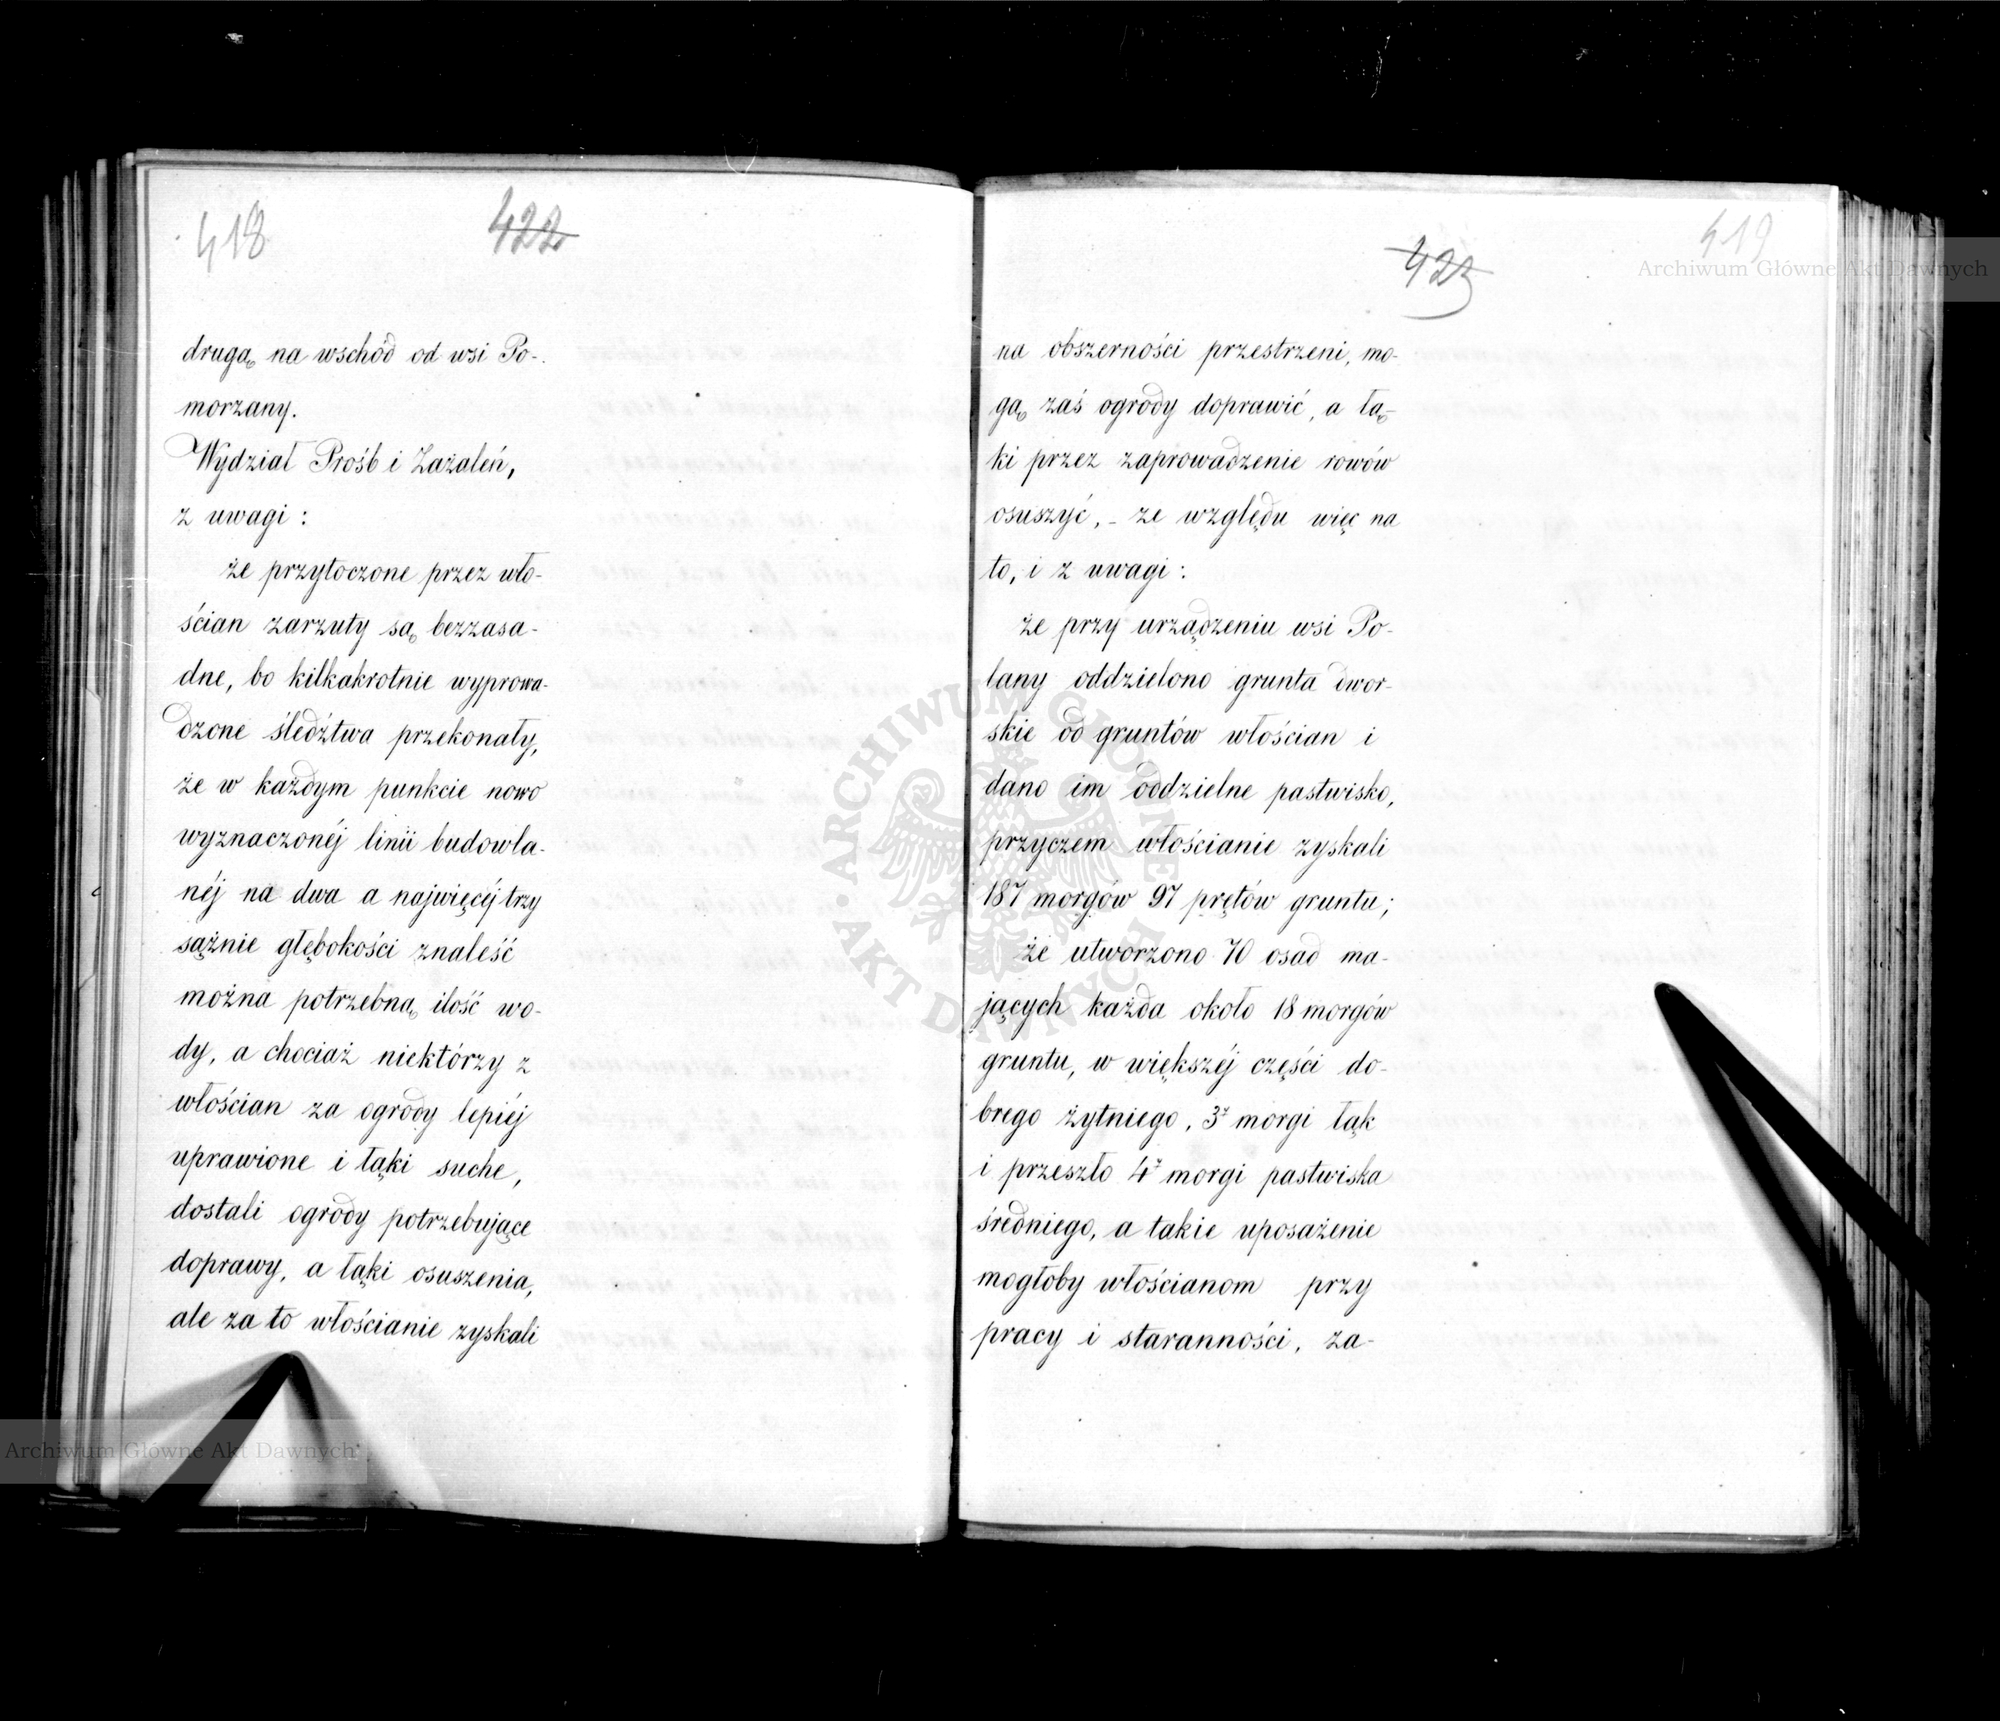 418
422
drugą na wschód od wsi Po-
morzany.
Wydział Prośb i Zażaleń,
z uwagi:
że przytoczone przez wło-
ścian zarzuty są bezzasa-
dne, bo kilkakrotnie wyprowa-
dzone śledźtwa przekonały,
że w każdym punkcie nowo
wyznaczonéj linii budowla-
néj na dwa a najwięcéj trzy
sążnie głębokości znaleść
można potrzebną ilość wo-
dy, a chociaż niektórzy z
włościan za ogrody lepiéj
uprawione i łąki suche,
dostali ogrody potrzebujące
doprawy, a łąki osuszenia,
ale za to włościanie zyskali
419
423
na obszerności przestrzeni, mo-
gą zaś ogrody doprawić, a łą-
ki przez zaprowadzenie rowów
osuszyć, - ze względu więc na
to, i z uwagi:
że przy urządzeniu wsi Po-
lany oddzielono grunta dwor-
skie od gruntów włościan i
dano im oddzielne pastwisko,
przyczem włościanie zyskali
187 morgów 97 prętów gruntu;
że utworzono 70 osad ma-
jących każda około 18 morgów
gruntu, w większéj części do-
brego żytniego, 3z morgi łąk
i przeszło 4z morgi pastwiska
średniego, a takie uposażenie
mogłoby włościanom przy
pracy i staranności, za-
Archiwum Główne Akt Dawnych
Archiwum Główne Akt Dawnych
ARCHIWUM GŁÓWNE AKT DAWNYCH